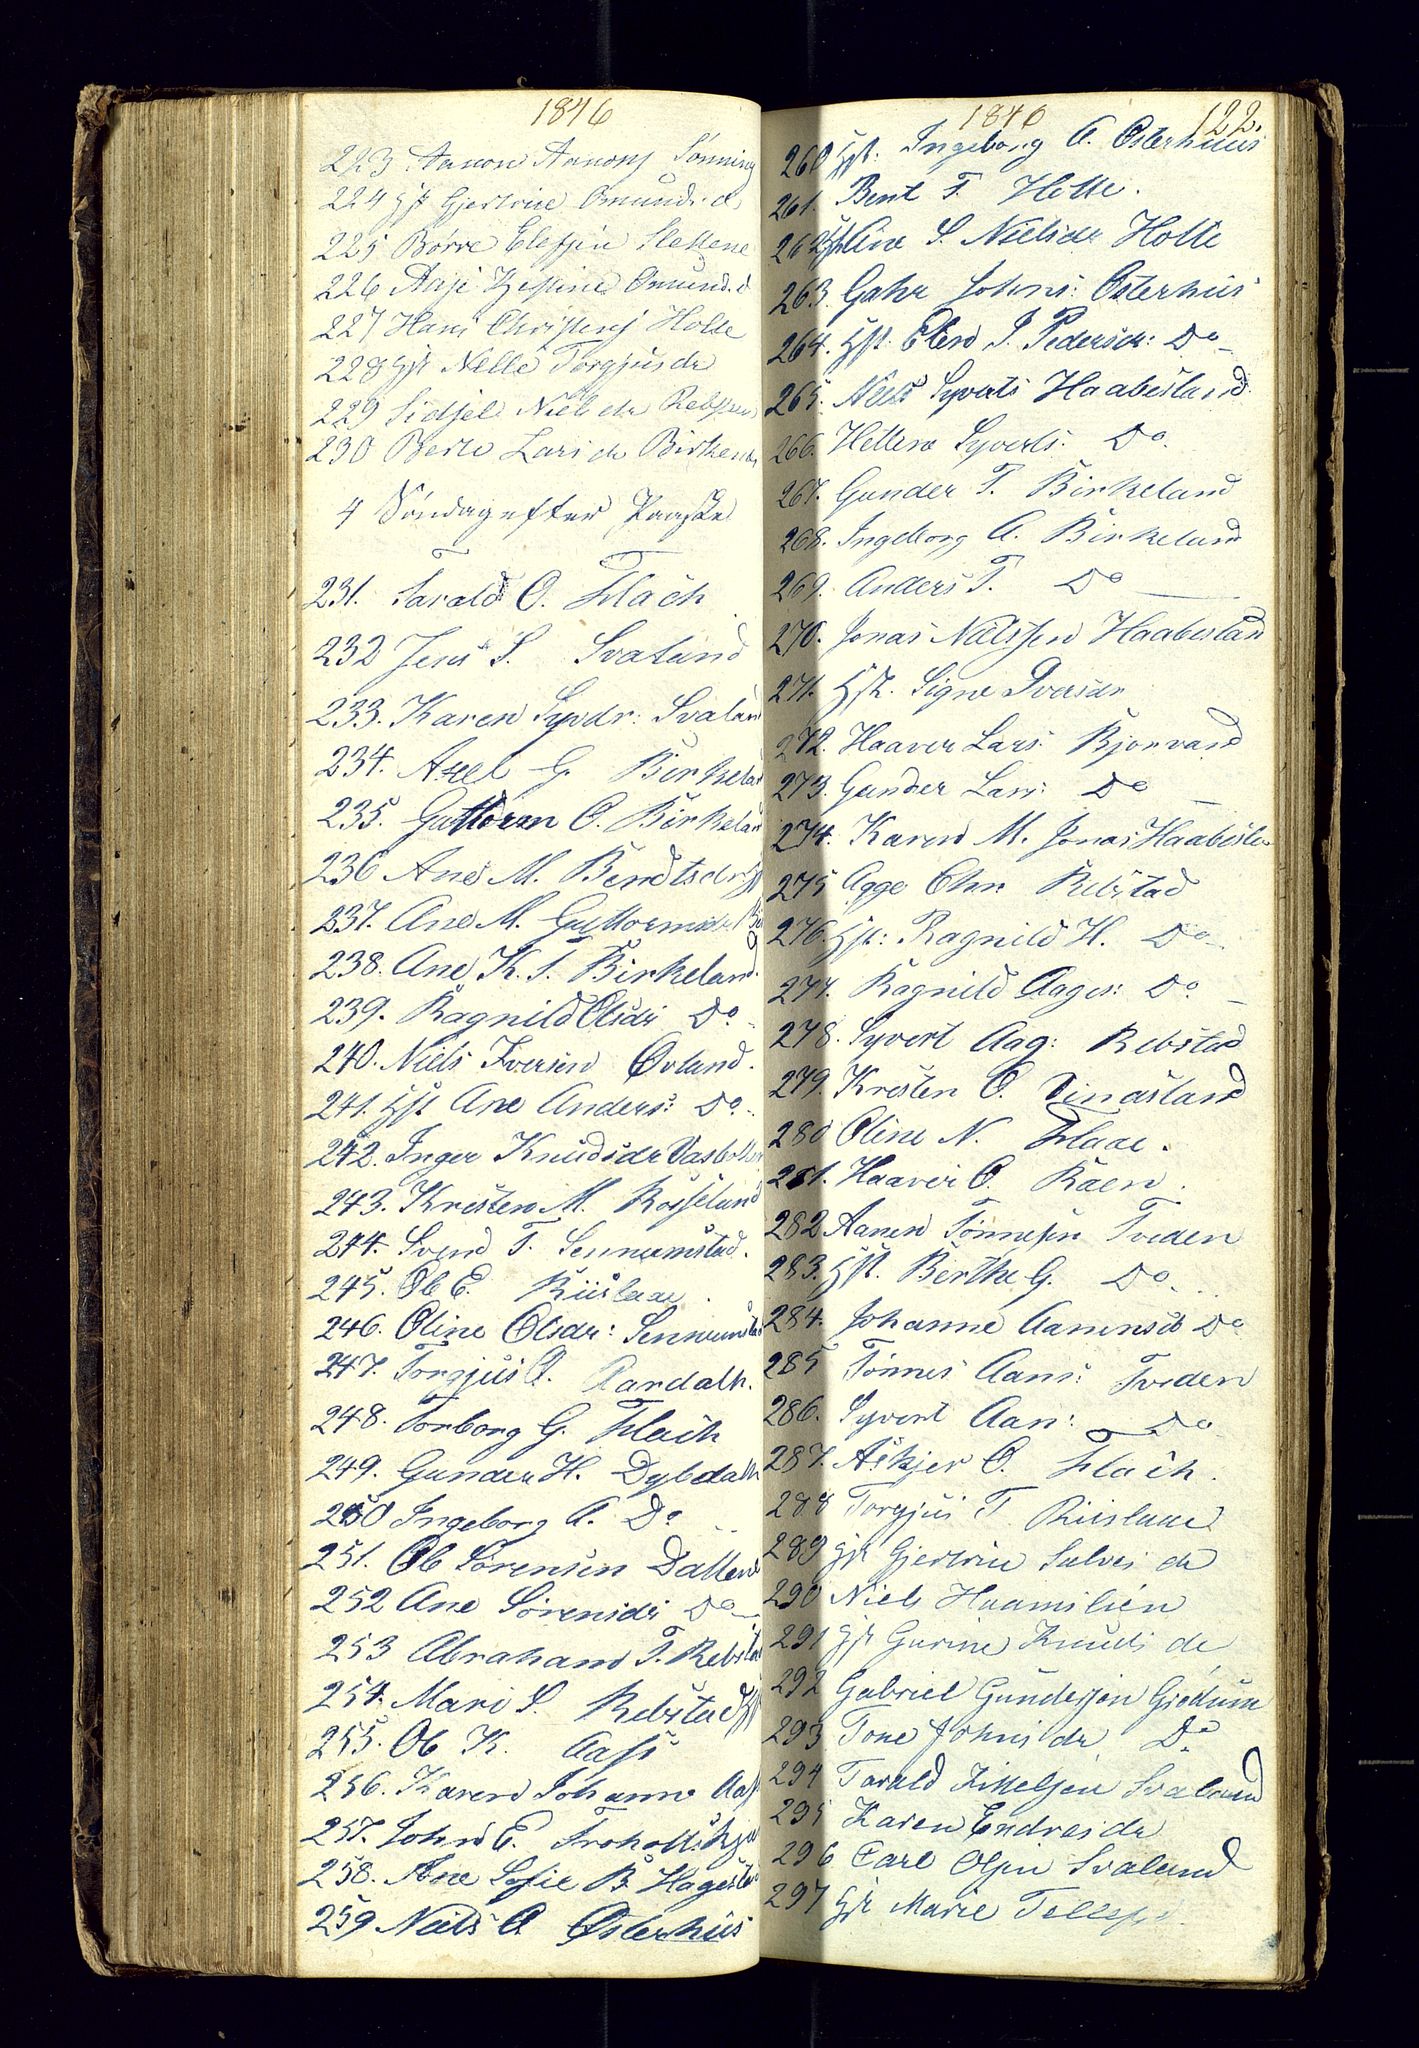 1846
223 Aanon Aanons Lønning
224 Hst Gjertrine Omunds.d.
225 Børre Elefsen Slettene
226 Aase Omund.d
227 Hans Christens Holte
228 Hst Nelle Torgjusdr
229 Sidsel Nielsdr
230 Berte Larsdr Birkene
4 Søndag efter Paaske
231. Tarald O. Flach
232 Jens S. Svaland
233. Karen Syvdr: Svaland
234. Axel G. Birkeland
235. Guttorm O. Birkeland
236 Ane M. Bendtsdr Hst
237. Ane M. Guttormsdr
238. Ane K. T. Birkeland
239. Ragnild Olsdr Do
240. Niels Iversen Øvland.
241. Hst Ane Anders: Do
242. Inger Knudsdr
243. Kristen M. Rosseland
244. Svend T. Sennumstad.
245. Ole E. Riislaae
246. Oline Olsdr: Sennumstad
247. Torgjus O. Aardalh.
248. Torborg G. Flach
249. Gunder H. Dybdalh
250 Ingeborg A. Do
251. Ole Sørensen Dalene
252 Ane Sørensdr Do
253 Abraham T. Rebstad
254. Mari S. Rebstad Hst
255. Ole K. Aass
256. Karen Johanne Aas
257. John E.
258. Ane Sofie B. Hagestad
259 Neels O Østerhus
1846
122.
260 Hst. Ingeborg A. Osterhuus
261. Bent T. Holte.
262 Hst Ane S. Nielsdr Holte
263. Gahr Johns: Osterhus
264. Hst. Elen J. Pedersdr: Do
265. Niels Syverts Haabesland
266. Hellene Syverts: Do.
267. Gunder T. Birkeland
268. Ingeborg A. Birkeland
269. Anders T. Do
270. Jonas Nielsen Haabesland
271. Hst. Signe Iversdr
272. Haaver Lars. Bjorvand
273. Gunder Lars: Do
274. Karen M. Jonas Haabesla
275 Agge Chr. Rebstad
276. Hst: Ragnild H. Do
277. Ragnild Aages: Do
278. Syvert Aag: Rebstad
279. Kristen O. Vinasland
280 Oline N. Flaae.
281. Haaver O. Raen.
282 Aanen Tønnesen Tveden
283. Hst. Berthe G. Do
284. Johanne Aanensd Do
285 Tønnes Aans: Tveden
286. Syvert Aan: Do
287. Askjer O. Flach.
288 Torgjus T. Riislaae
289 Hst Gjertrine Salves dr
290 Niels
291 Hst Gurine Knuds dr
292 Gabriel Gundersen
293 Tone Johnsdr Do
294 Tarald Kittelsen Svaland
295 Karen Endresdr
296 Carl Olsen Svaland
297 Hst Marie Tellefs